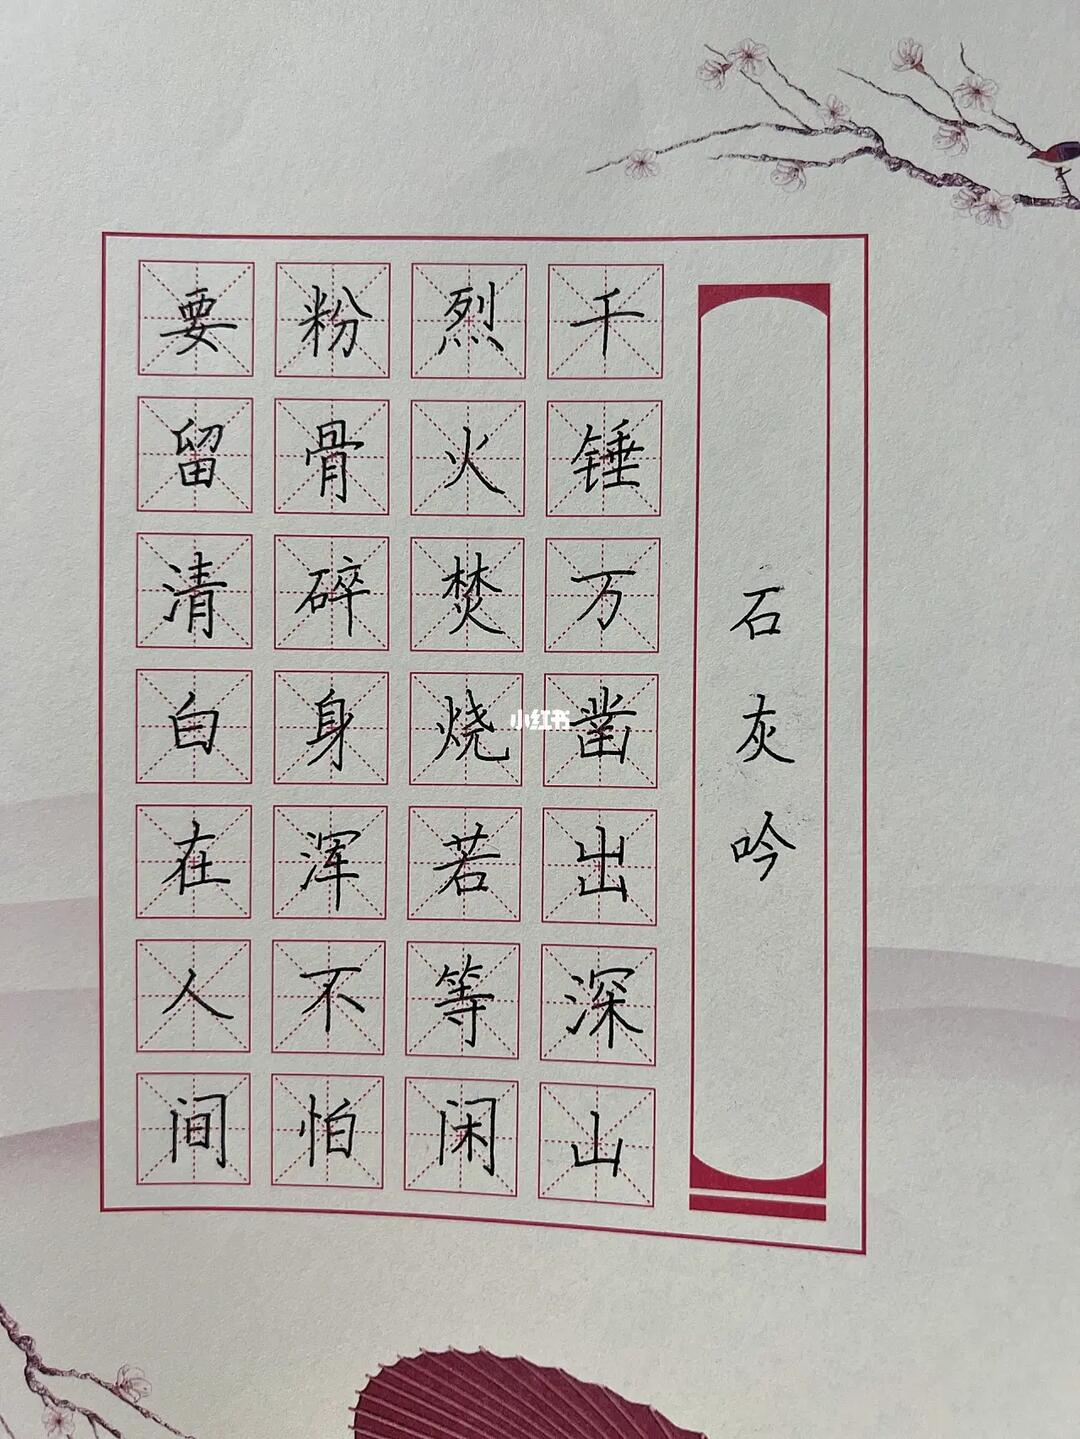 石灰吟
千锤万凿出深山
烈火焚烧若等闲
粉骨碎身浑不怕
要留清白在人间
小红书